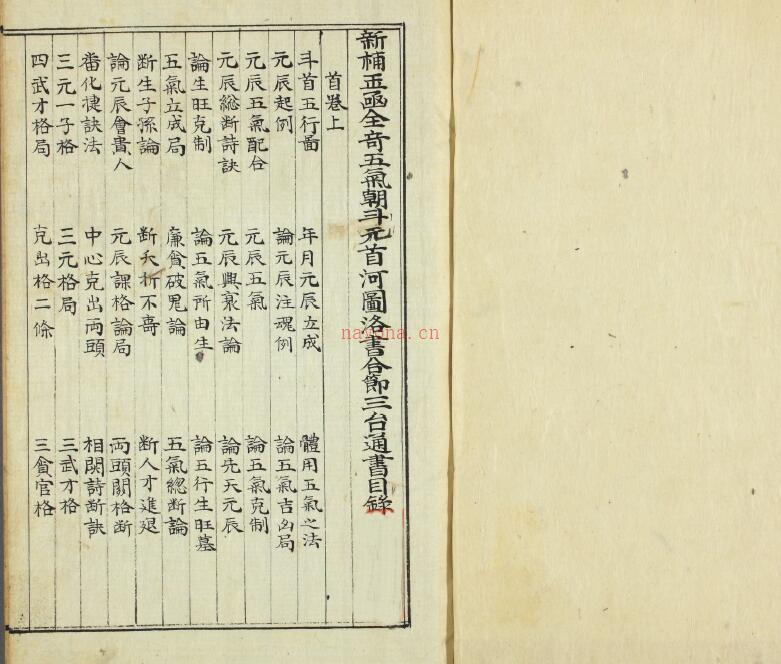 新補玉函全竒五氣朝斗元首河圖洛書合節三台通書目錄
首卷上
斗首五行圖 年月元辰立成 體用五氣之法
元辰起例 論元辰注魂例 論五氣吉凶局
元辰五氣配合 元辰五氣 論五氣克制
元辰総断詩訣 元辰興衰法論 論先天元辰
論生旺克制 論五氣所由生 論五行生旺墓
五氣立成局 廉貪破鬼論 五氣緫断論
断生子孫論 断夭折不壽 断人才進退
論元辰會貴人 元辰課格論局 両頭關格断
畨化捷訣法 中心克出両頭 相関詩断訣
三元一子格 三元格局 三武才格
四武才格局 克出格二條 三貪官格
nayona.cn